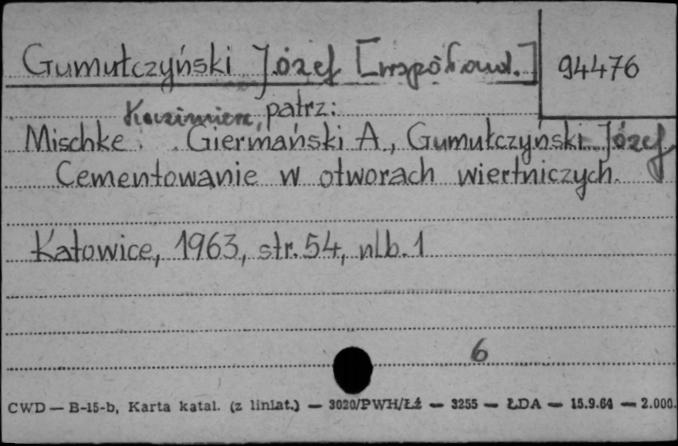 Gumułczyński Józef [współaut.] 94476
Kazimierz, patrz:
Mischke. Giermański A., Gumułczyński Józef
Cementowanie w otworach wiertniczych.
Katowice, 1963, str. 54, nlb. 1
6
CWD — B-15-b, Karta katal. (z liniat.) — 3020/PWH/Łż — 3255 — ŁDA — 15.9.64 — 2.000.